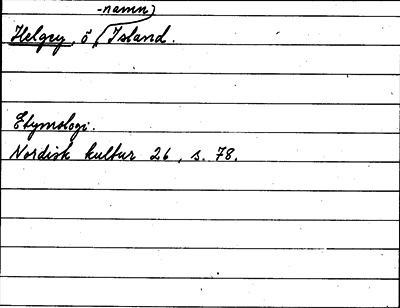 -namn)
Helgey, ö (Island.
Etymologi.
Nordisk kultur 26, s. 78.